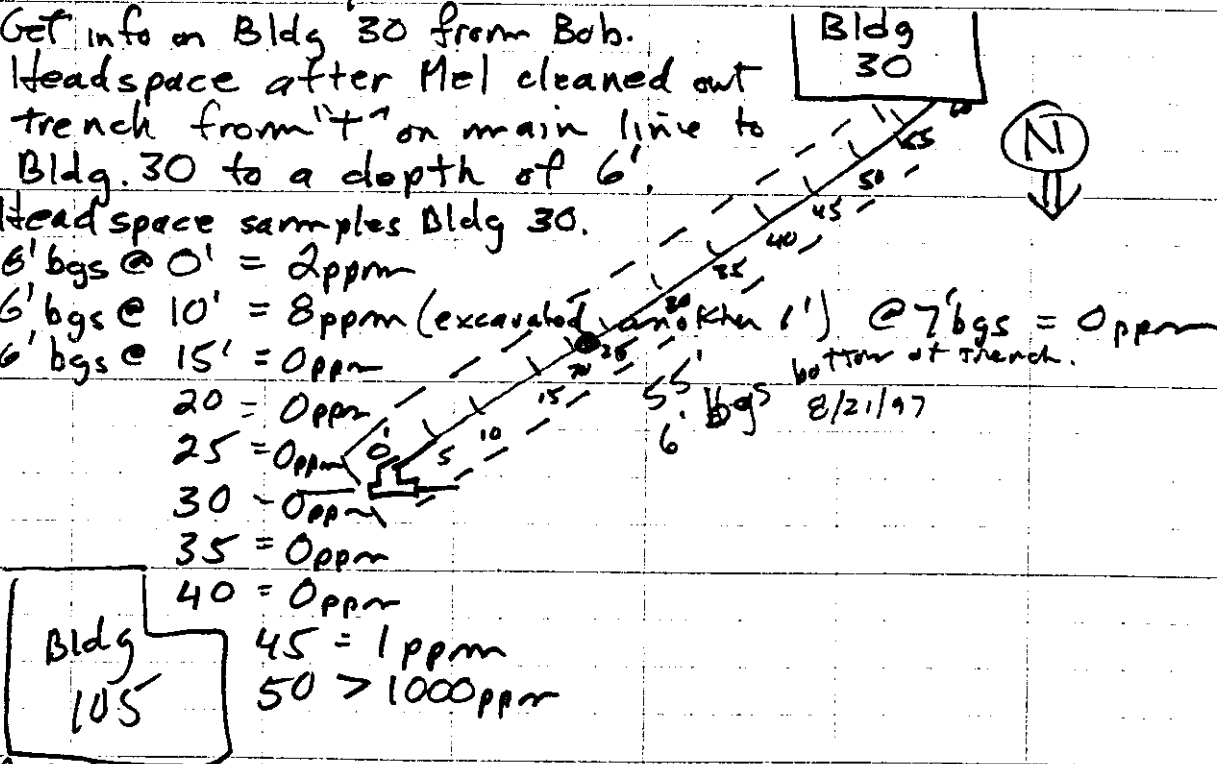 Get info on Bldg 30 from Bob.
Headspace after Mel cleaned out
trench from "t" on main line to
Bldg. 30 to a depth of 6'.
Head space samples Bldg 30.
6' bgs @ 0' = 2ppm
6' bgs @ 10' = 8ppm (excavated another 1') @ 7' bgs = 0ppm
bottom of trench.
6' bgs @ 15' = 0ppm
20 = 0ppm
25 = 0ppm
30 - 0ppm
35 = 0ppm
40 = 0ppm
45 = 1ppm
50 > 1000ppm
Bldg
30
N
60
55
50
45
40
35
30
25
20
15
10
5
0'
55'
6' bgs
8/21/97
Bldg
105